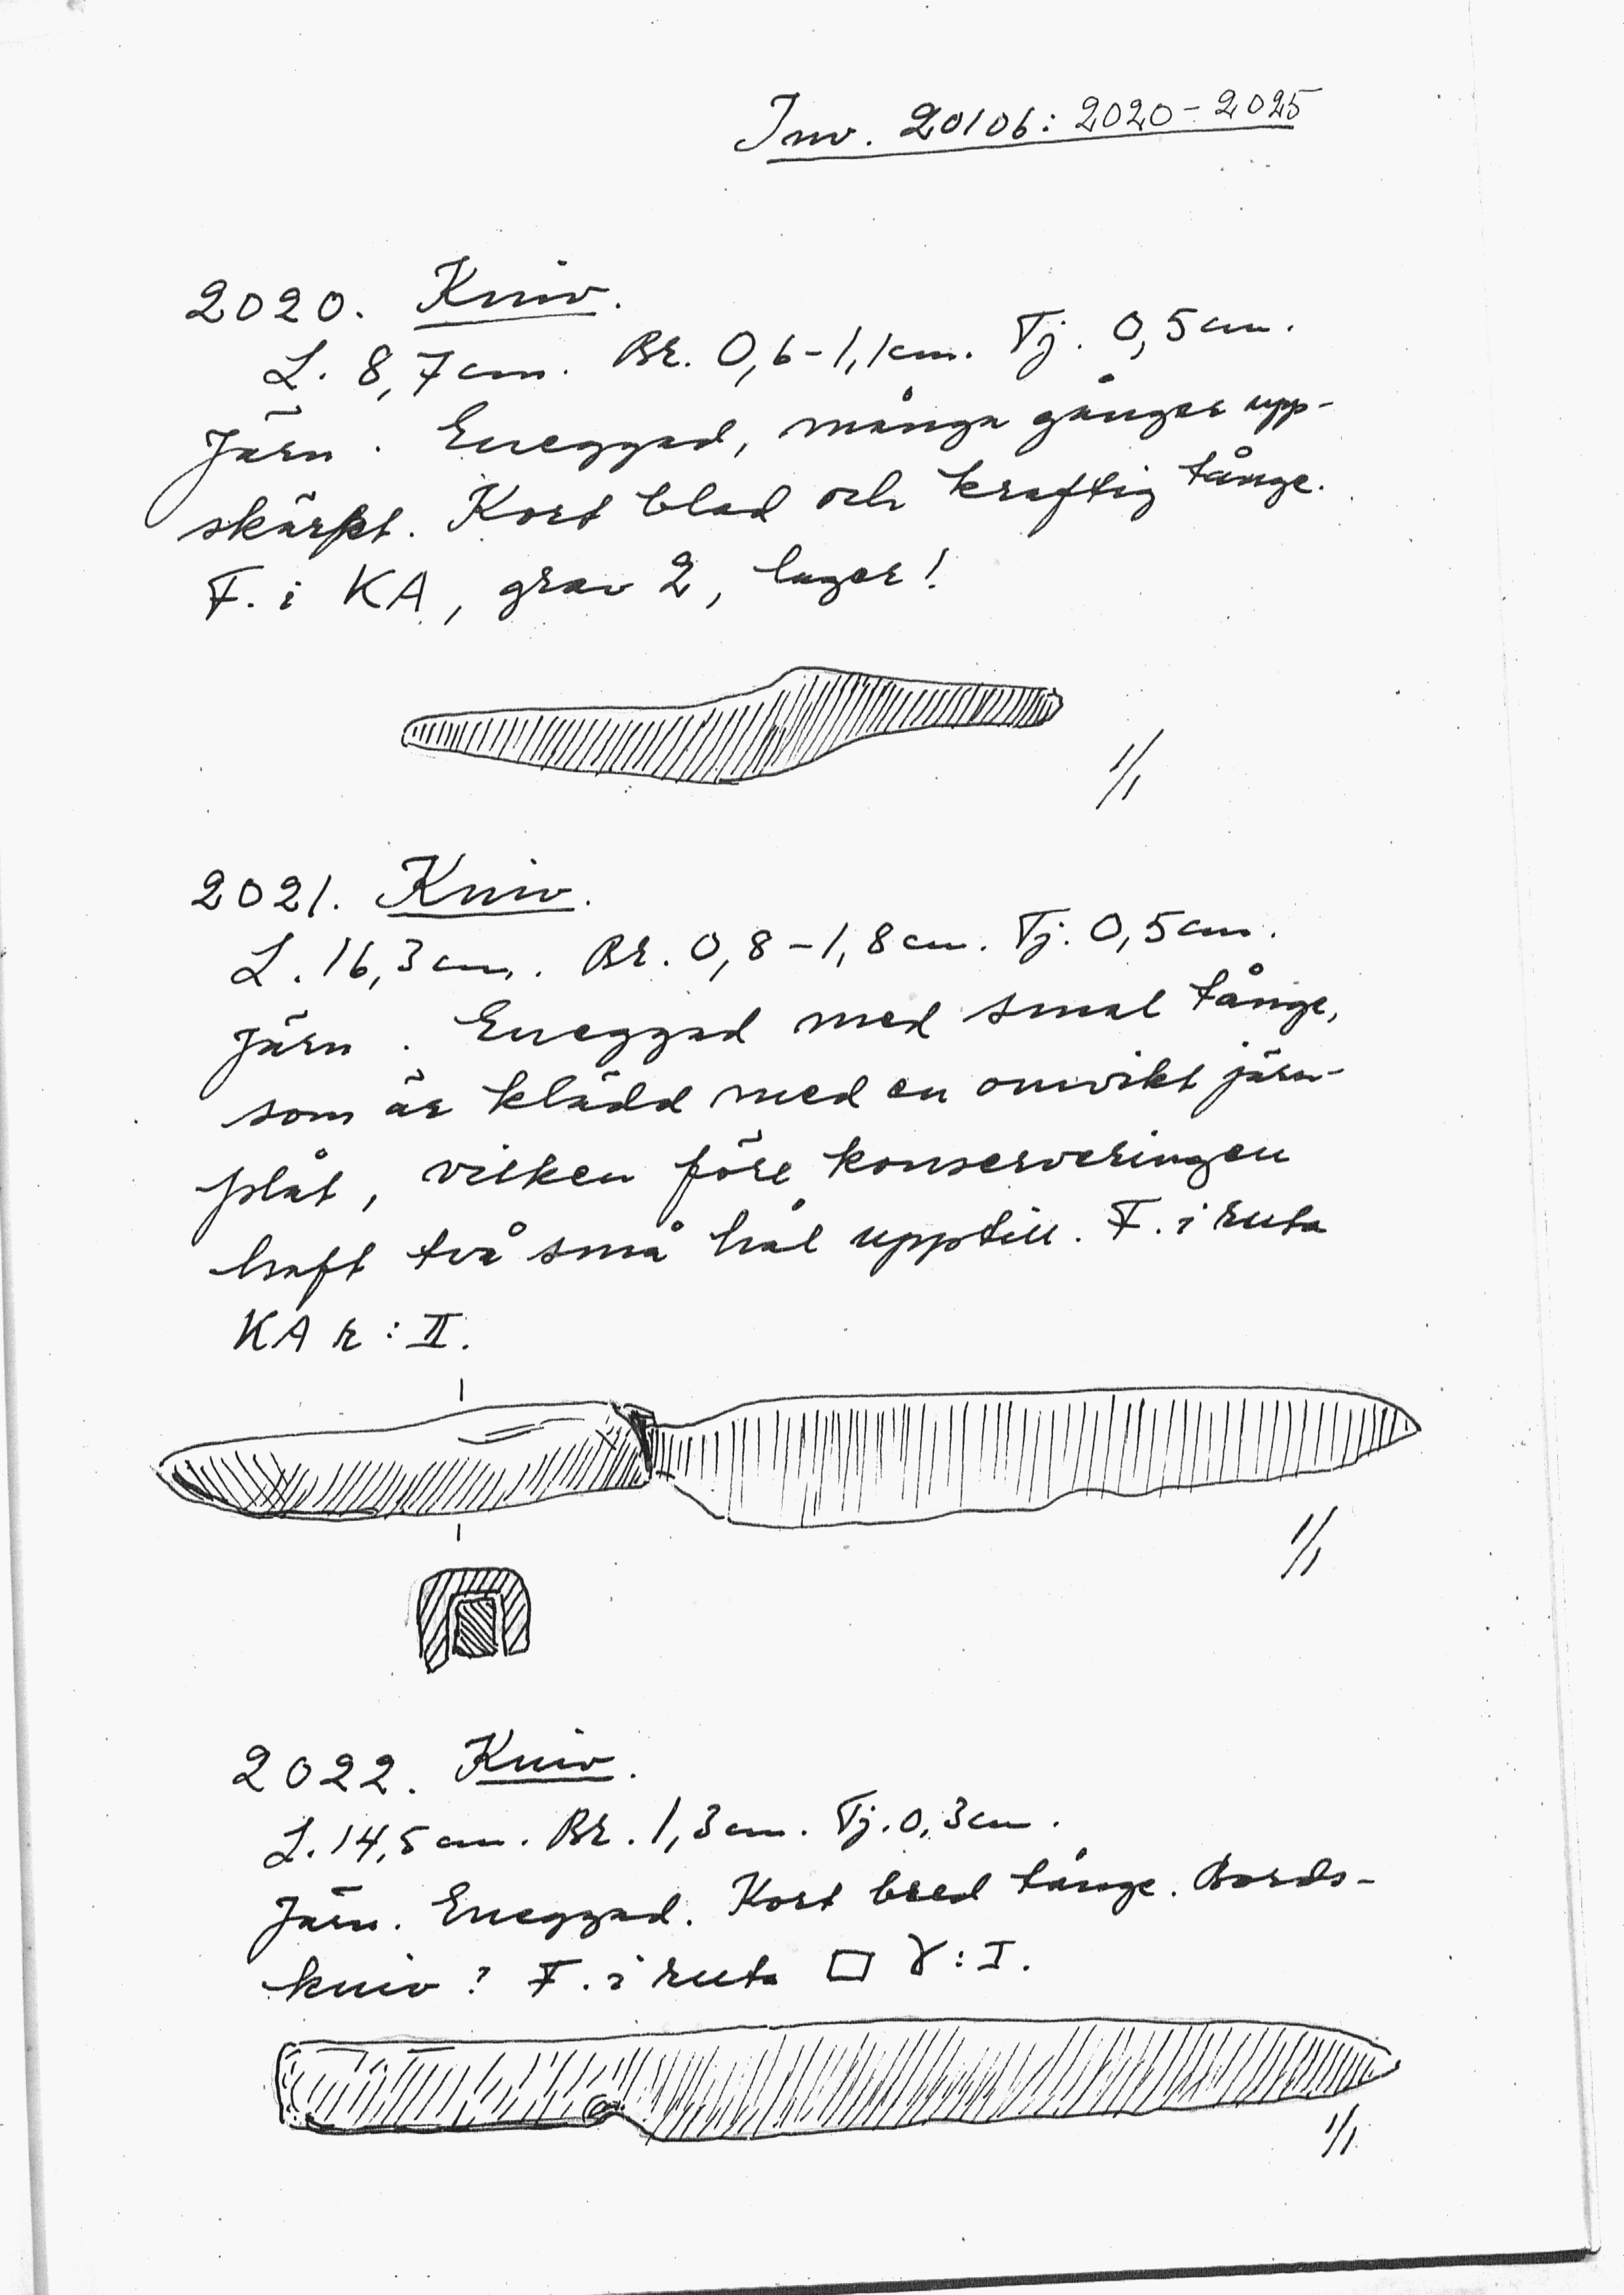 Inv. 20106: 2020-2025
2020. Kniv.
L. 8,7 cm. Br. 0,6-1,1 cm. Tj. 0,5 cm.
Järn. Eneggad, många gånger upp-
skärpt. Kort blad och kraftig tånge.
F. i KA, grav 2, lager!
1/1
2021. Kniv.
L. 16,3 cm. Br. 0,8-1,8 cm. Tj. 0,5 cm.
Järn. Eneggad med smal tånge,
som är klädd med en omvikt järn-
plåt, vilken före konserveringen
haft två små hål upptill. F. i ruta
KA r: II.
1/1
2022. Kniv.
L. 14,5 cm. Br. 1,3 cm. Tj. 0,3 cm.
Järn. Eneggad. Kort bred tånge. Bords-
kniv? F. i ruta □ γ: I.
1/1